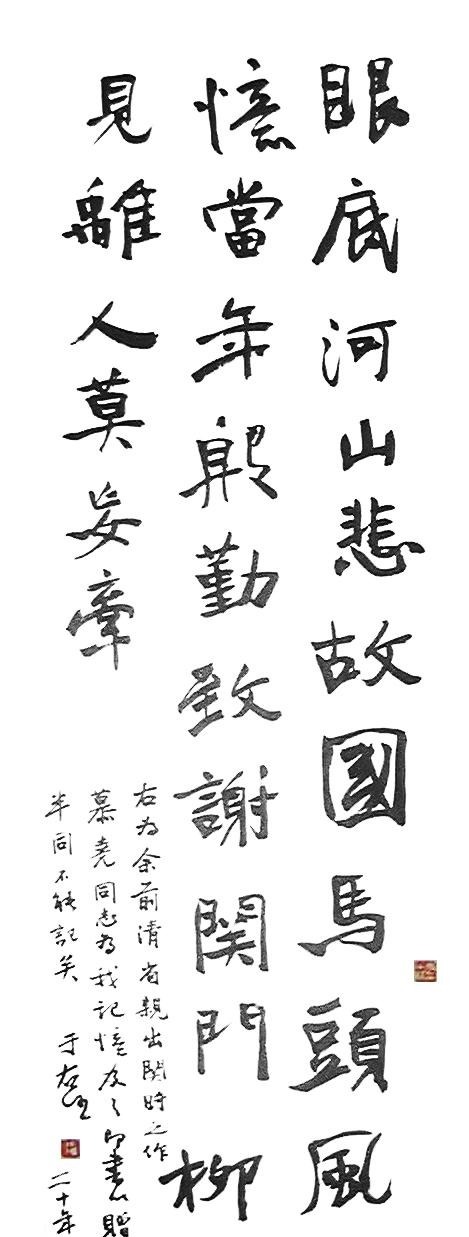 眼底河山悲故國馬頭風
憶當年殷勤致謝関門柳
見離人莫妄牽
右为余前清省親出関時之作
慕堯同志为我記憶及之即書以贈
不能記矣 于右任 二十年